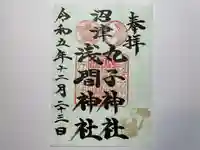 奉拝
沼津
丸子神社
浅間神社
令和五年十二月二十三日